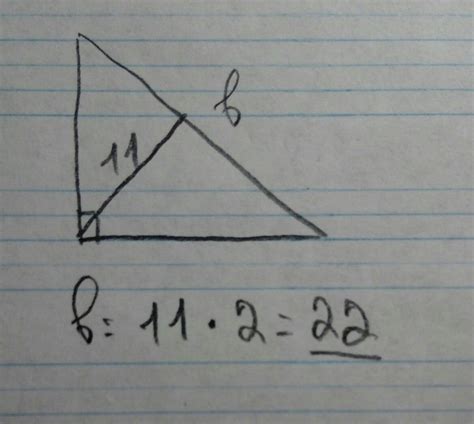 b
11
b = 11 · 2 = 22